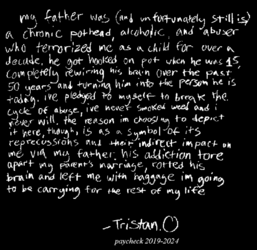 my father was (and unfortunately still is)
a chronic pothead, alcoholic, and abuser
who terrorized me as a child for over a
decade. he got hooked on pot when he was 15,
completely rewiring his brain over the past
50 years and turning him into the person he is
today. ive pledged to myself to break the
cycle of abuse, ive never smoked weed and i
never will. the reason im choosing to depict
it here, though, is as a symbol of its
repercussions and their indirect impact on
me via my father. his addiction tore
apart my parent's marriage, rotted his
brain and left me with baggage im going
to be carrying for the rest of my life
-Tristan.()
paycheck 2019-2024